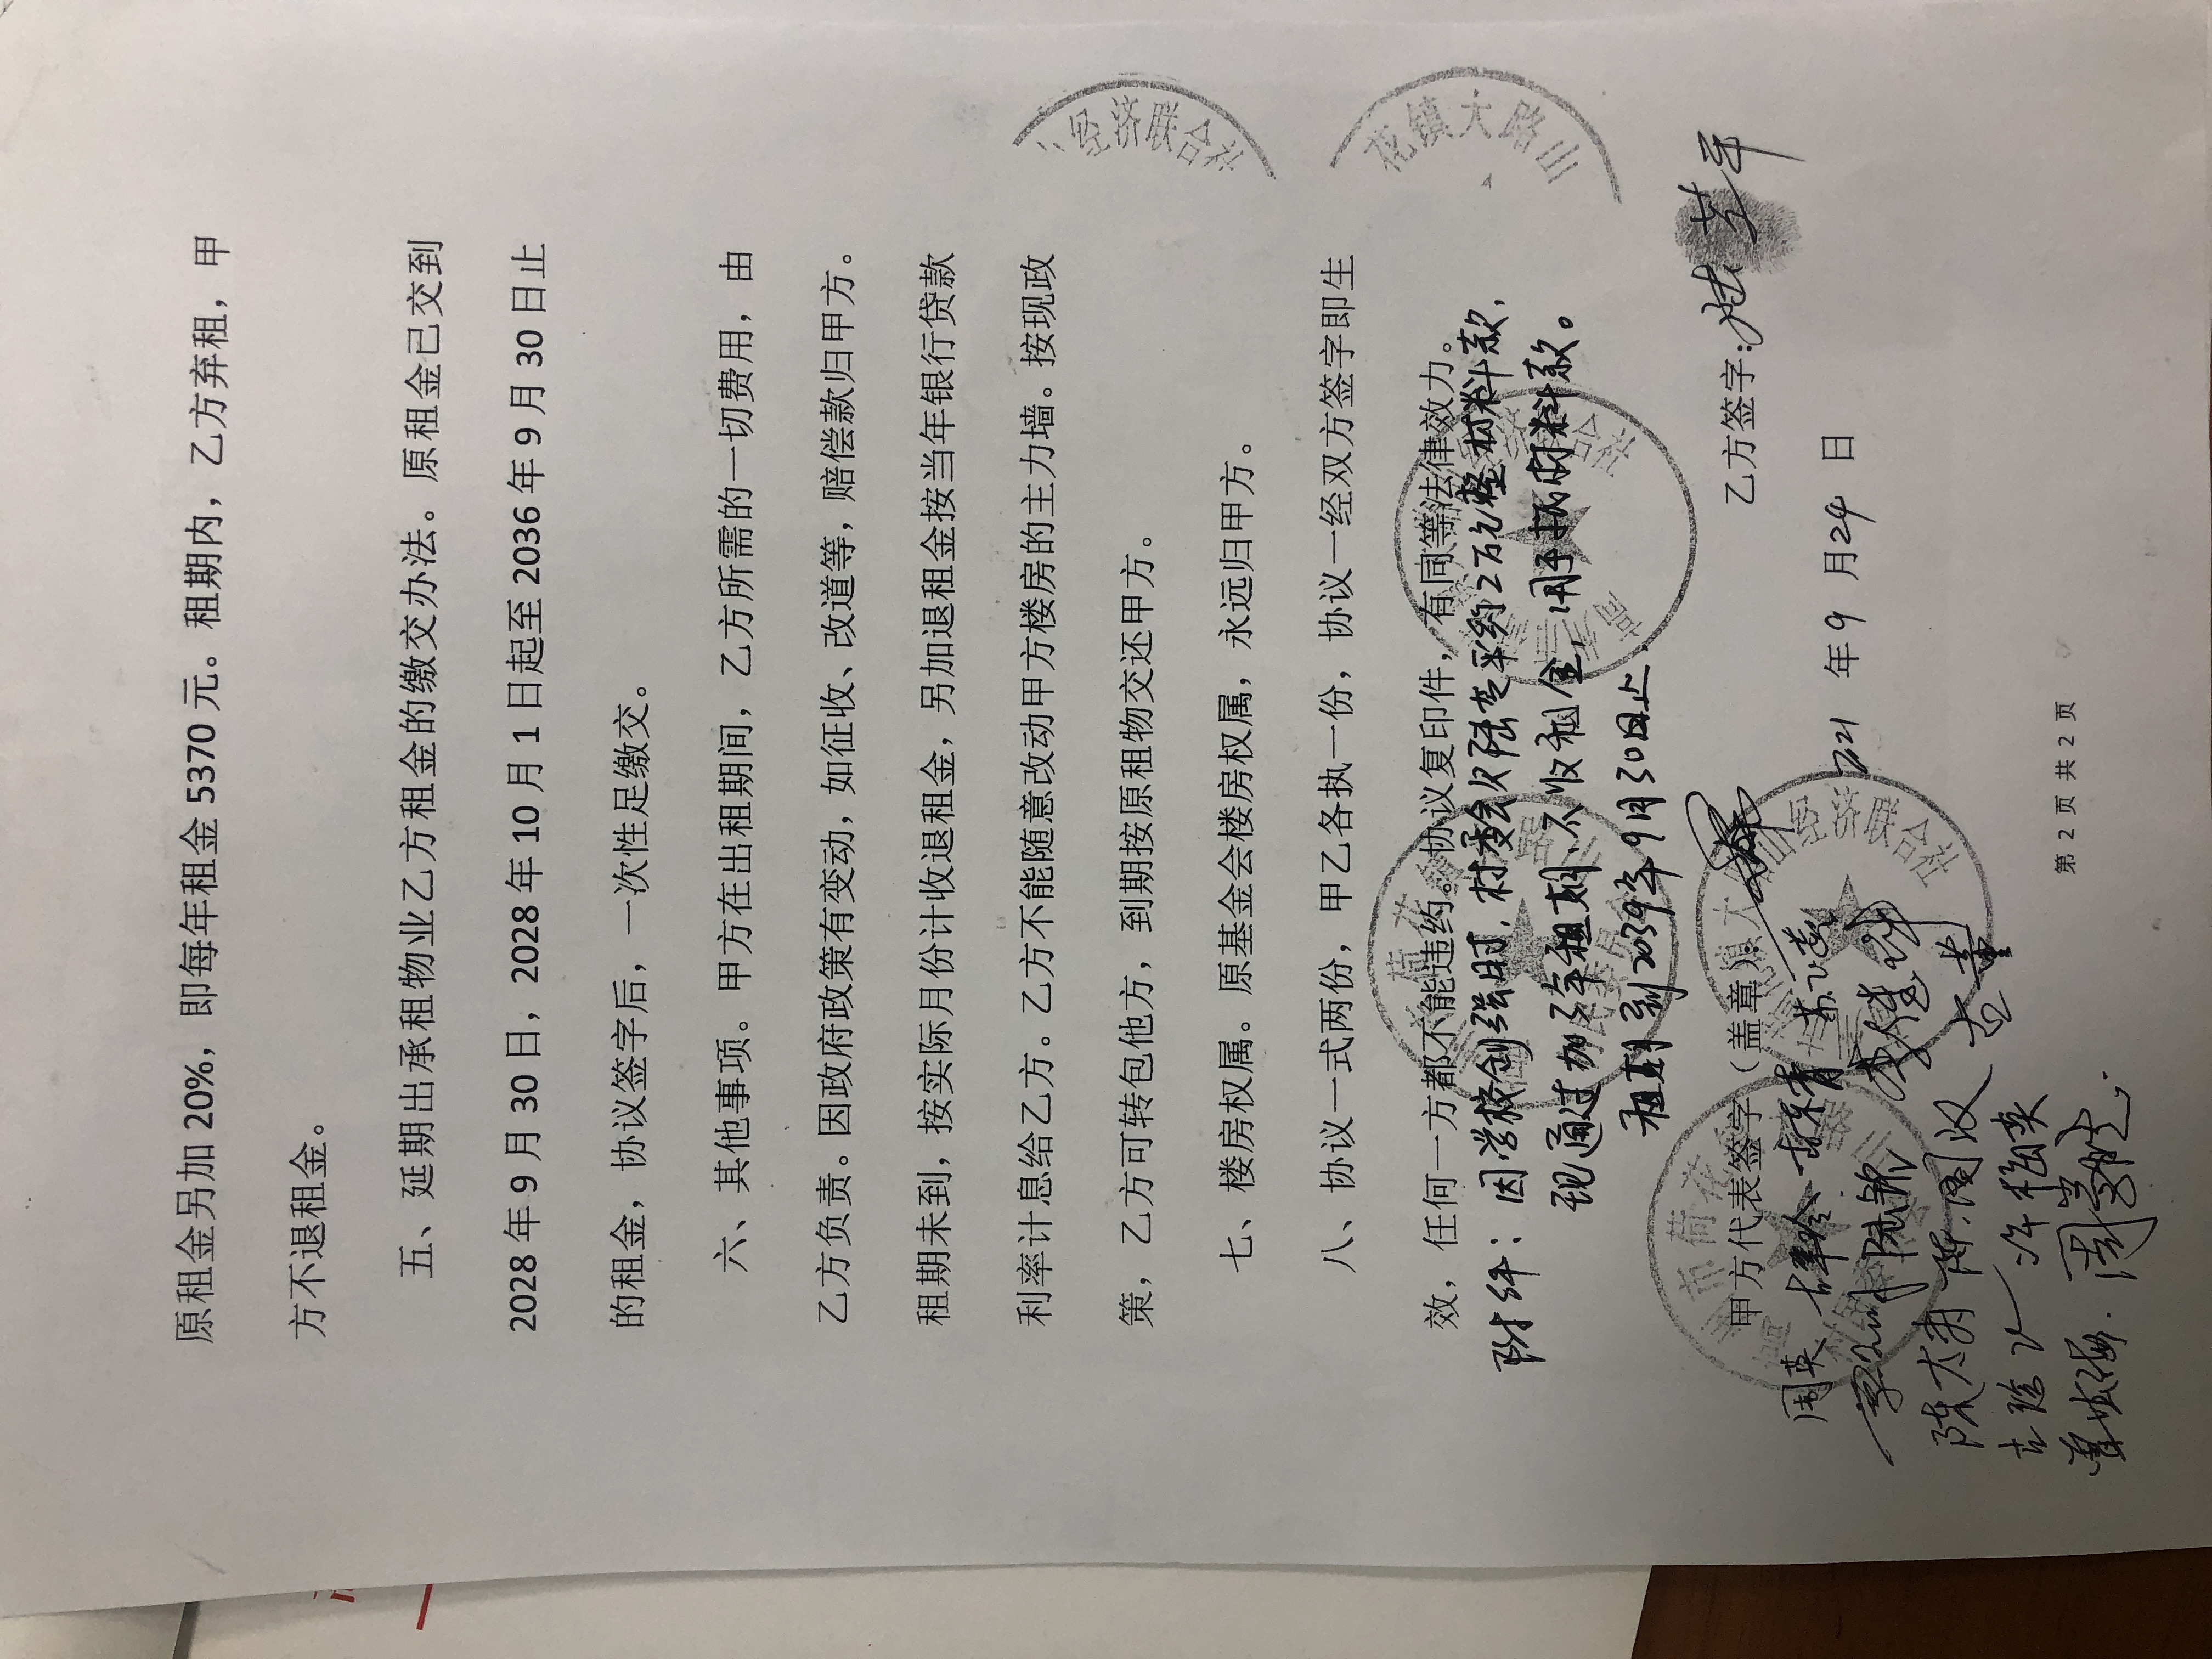 原租金另加 20%，即每年租金 5370 元。租期内，乙方弃租，甲
方不退租金。
五、延期出承租物业乙方租金的缴交办法。原租金已交到
2028 年 9 月 30 日，2028 年 10 月 1 日起至 2036 年 9 月 30 日止
的租金，协议签字后，一次性足缴交。
六、其他事项。甲方在出租期间，乙方所需的一切费用，由
乙方负责。因政府政策有变动，如征收、改道等，赔偿款归甲方。
租期未到，按实际月份计收退租金，另加退租金按当年银行贷款
利率计息给乙方。乙方不能随意改动甲方楼房的主力墙。按现政
策，乙方可转包他方，到期按原租物交还甲方。
七、楼房权属。原基金会楼房权属，永远归甲方。
八、协议一式两份，甲乙各执一份，协议一经双方签字即生
效，任何一方都不能违约。协议复印件，有同等法律效力。
附件：因学校创强时，村委会欠陆 平约2万元整材料款，
现通过加3年租期，不收租金，用于抵材料款。
租期到2039年9月30日止
甲方代表签字（盖章）：
乙方签字：陆 平
2021 年 9 月 24 日
周英
陈国汉
经济联合社
花镇大路
第 2 页 共 2 页